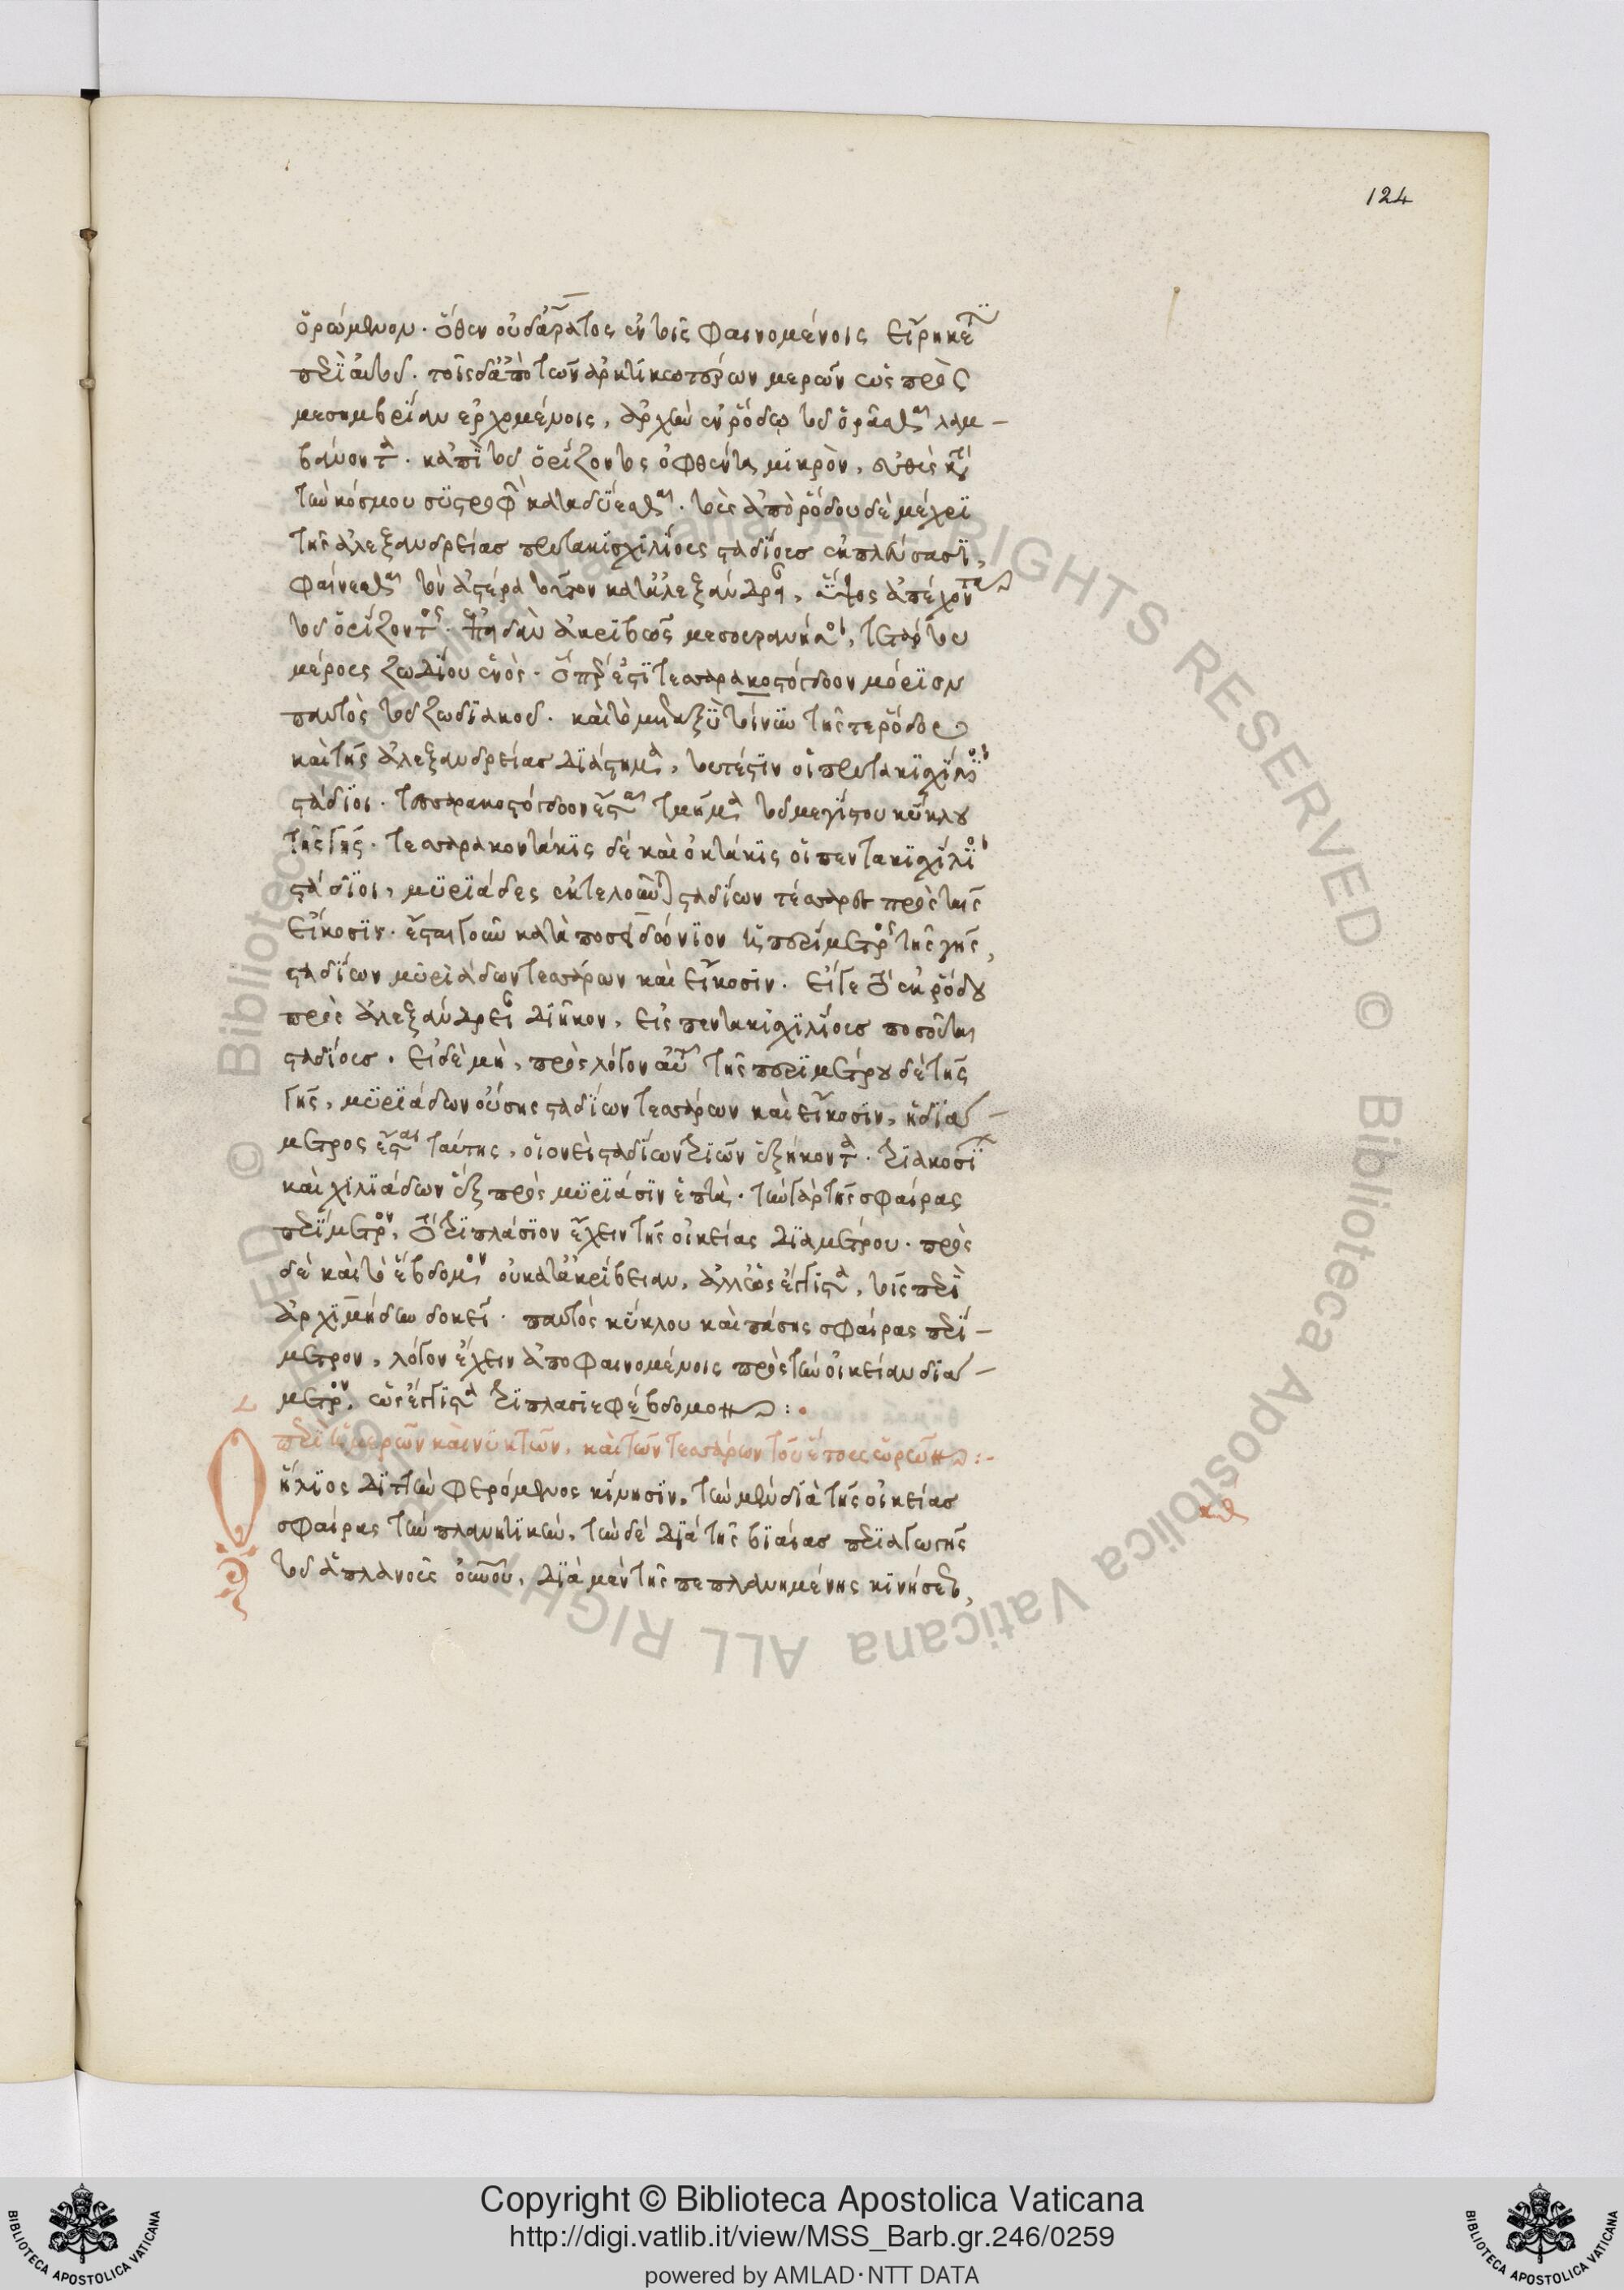 124
ὁρώμενον. ὅθεν οὐδ' ἄρατος ἐν τοῖς φαινομένοις εἴρηκέ τι
περὶ αὐτοῦ. τοῖς δ' ἀπὸ τῶν ἀρκτικωτέρων μερῶν ὡς πρὸς
μεσημβρίαν ἐρχομένοις, ἀρχὴν ἐν ῥόδῳ τοῦ ὁρᾶσθαι λαμ-
βάνοντα. κἀπὶ τοῦ ὁρίζοντος ὀφθέντα μικρὸν, εὐθὺς
τῶ κόσμου συστροφῇ καταδύεσθαι. τοῖς ἀπὸ ῥόδου δὲ μέχρι
τῆς ἀλεξανδρείας πεντακισχιλίους σταδίους ἐκπλεύσασι,
φαίνεσθαι τὸν ἀστέρα τοῦτον κατ' ἀλεξάνδρειαν, ὕψος ἀπέχοντα
τοῦ ὁρίζοντος. ἐπειδὰν ἀκριβῶς μεσουρανήσοι, τέταρτον
μέρος ζωδίου ἑνός. ὅπερ ἐστὶ τεσσαρακοστόγδοον μόριον
παντὸς τοῦ ζωδιακοῦ. καὶ τὸ μεταξὺ τοίνυν τῆς τε ῥόδου
καὶ τῆς ἀλεξανδρείας διάστημα, τουτέστιν οἱ πεντακισχίλιοι
στάδιοι. τεσσαρακοστόγδοον ἔσται τμῆμα τοῦ μεγίστου κύκλου
τῆς γῆς. τεσσαρακοντάκις δὲ καὶ ὀκτάκις οἱ πεντακισχίλιοι
στάδιοι, μυριάδες ἐκτελοῦνται σταδίων τέσσαρες πρὸς ταῖς
εἴκοσιν. ἔσται γοῦν κατὰ ποσειδώνιον ἡ περίμετρος τῆς γῆς,
σταδίων μυριάδων τεσσάρων καὶ εἴκοσιν. εἴγε τὸ ἐκ ῥόδου
πρὸς ἀλεξάνδρειαν διῆκον, εἰς πεντακισχιλίους ποσοῦται
σταδίους. εἰ δὲ μὴ, πρὸς λόγον αὖ τῆς περιμέτρου δὲ τῆς
γῆς, μυριάδων οὔσης σταδίων τεσσάρων καὶ εἴκοσιν, ἡ διά-
μετρος ἔσται ταύτης, οἱονεὶ σταδίων τριῶν ἑξήκοντα. τριακοσί
καὶ χιλιάδων ἓξ πρὸς μυριάσιν ἑπτά. τὴν γὰρ τῆς σφαίρας
περίμετρον, τὸ τριπλάσιον ἔχειν τῆς οἰκείας διαμέτρου. πρὸς
δὲ καὶ τὸ ἕβδομον οὐ κατ' ἀκρίβειαν, ἀλλ' ὡς ἔγγιστα, τοῖς περὶ
ἀρχιμήδην δοκεῖ. παντὸς κύκλου καὶ πάσης σφαίρας περί-
μετρον, λόγον ἔχειν ἀποφαινομένοις πρὸς τὴν οἰκείαν διά-
μετρον, ὡς ἔγγιστα τριπλασιεφέβδομον :·
περὶ ἡμερῶν καὶ νυκτῶν, καὶ τῶν τεσσάρων τοῦ ἔτους ὡρῶν :-
Ὁ ἥλιος διττὴν φερόμενος κίνησιν, τὴν μὲν διὰ τῆς οἰκείας
σφαίρας τὴν πλανητικὴν, τὴν δὲ διὰ τῆς βιαίας περιαγωγῆς
τοῦ ἀπλανοῦς οὐρανοῦ, διὰ μὲν τῆς πεπλανημένης κινήσεως,
Copyright © Biblioteca Apostolica Vaticana
http://digi.vatlib.it/view/MSS_Barb.gr.246/0259
powered by AMLAD·NTT DATA